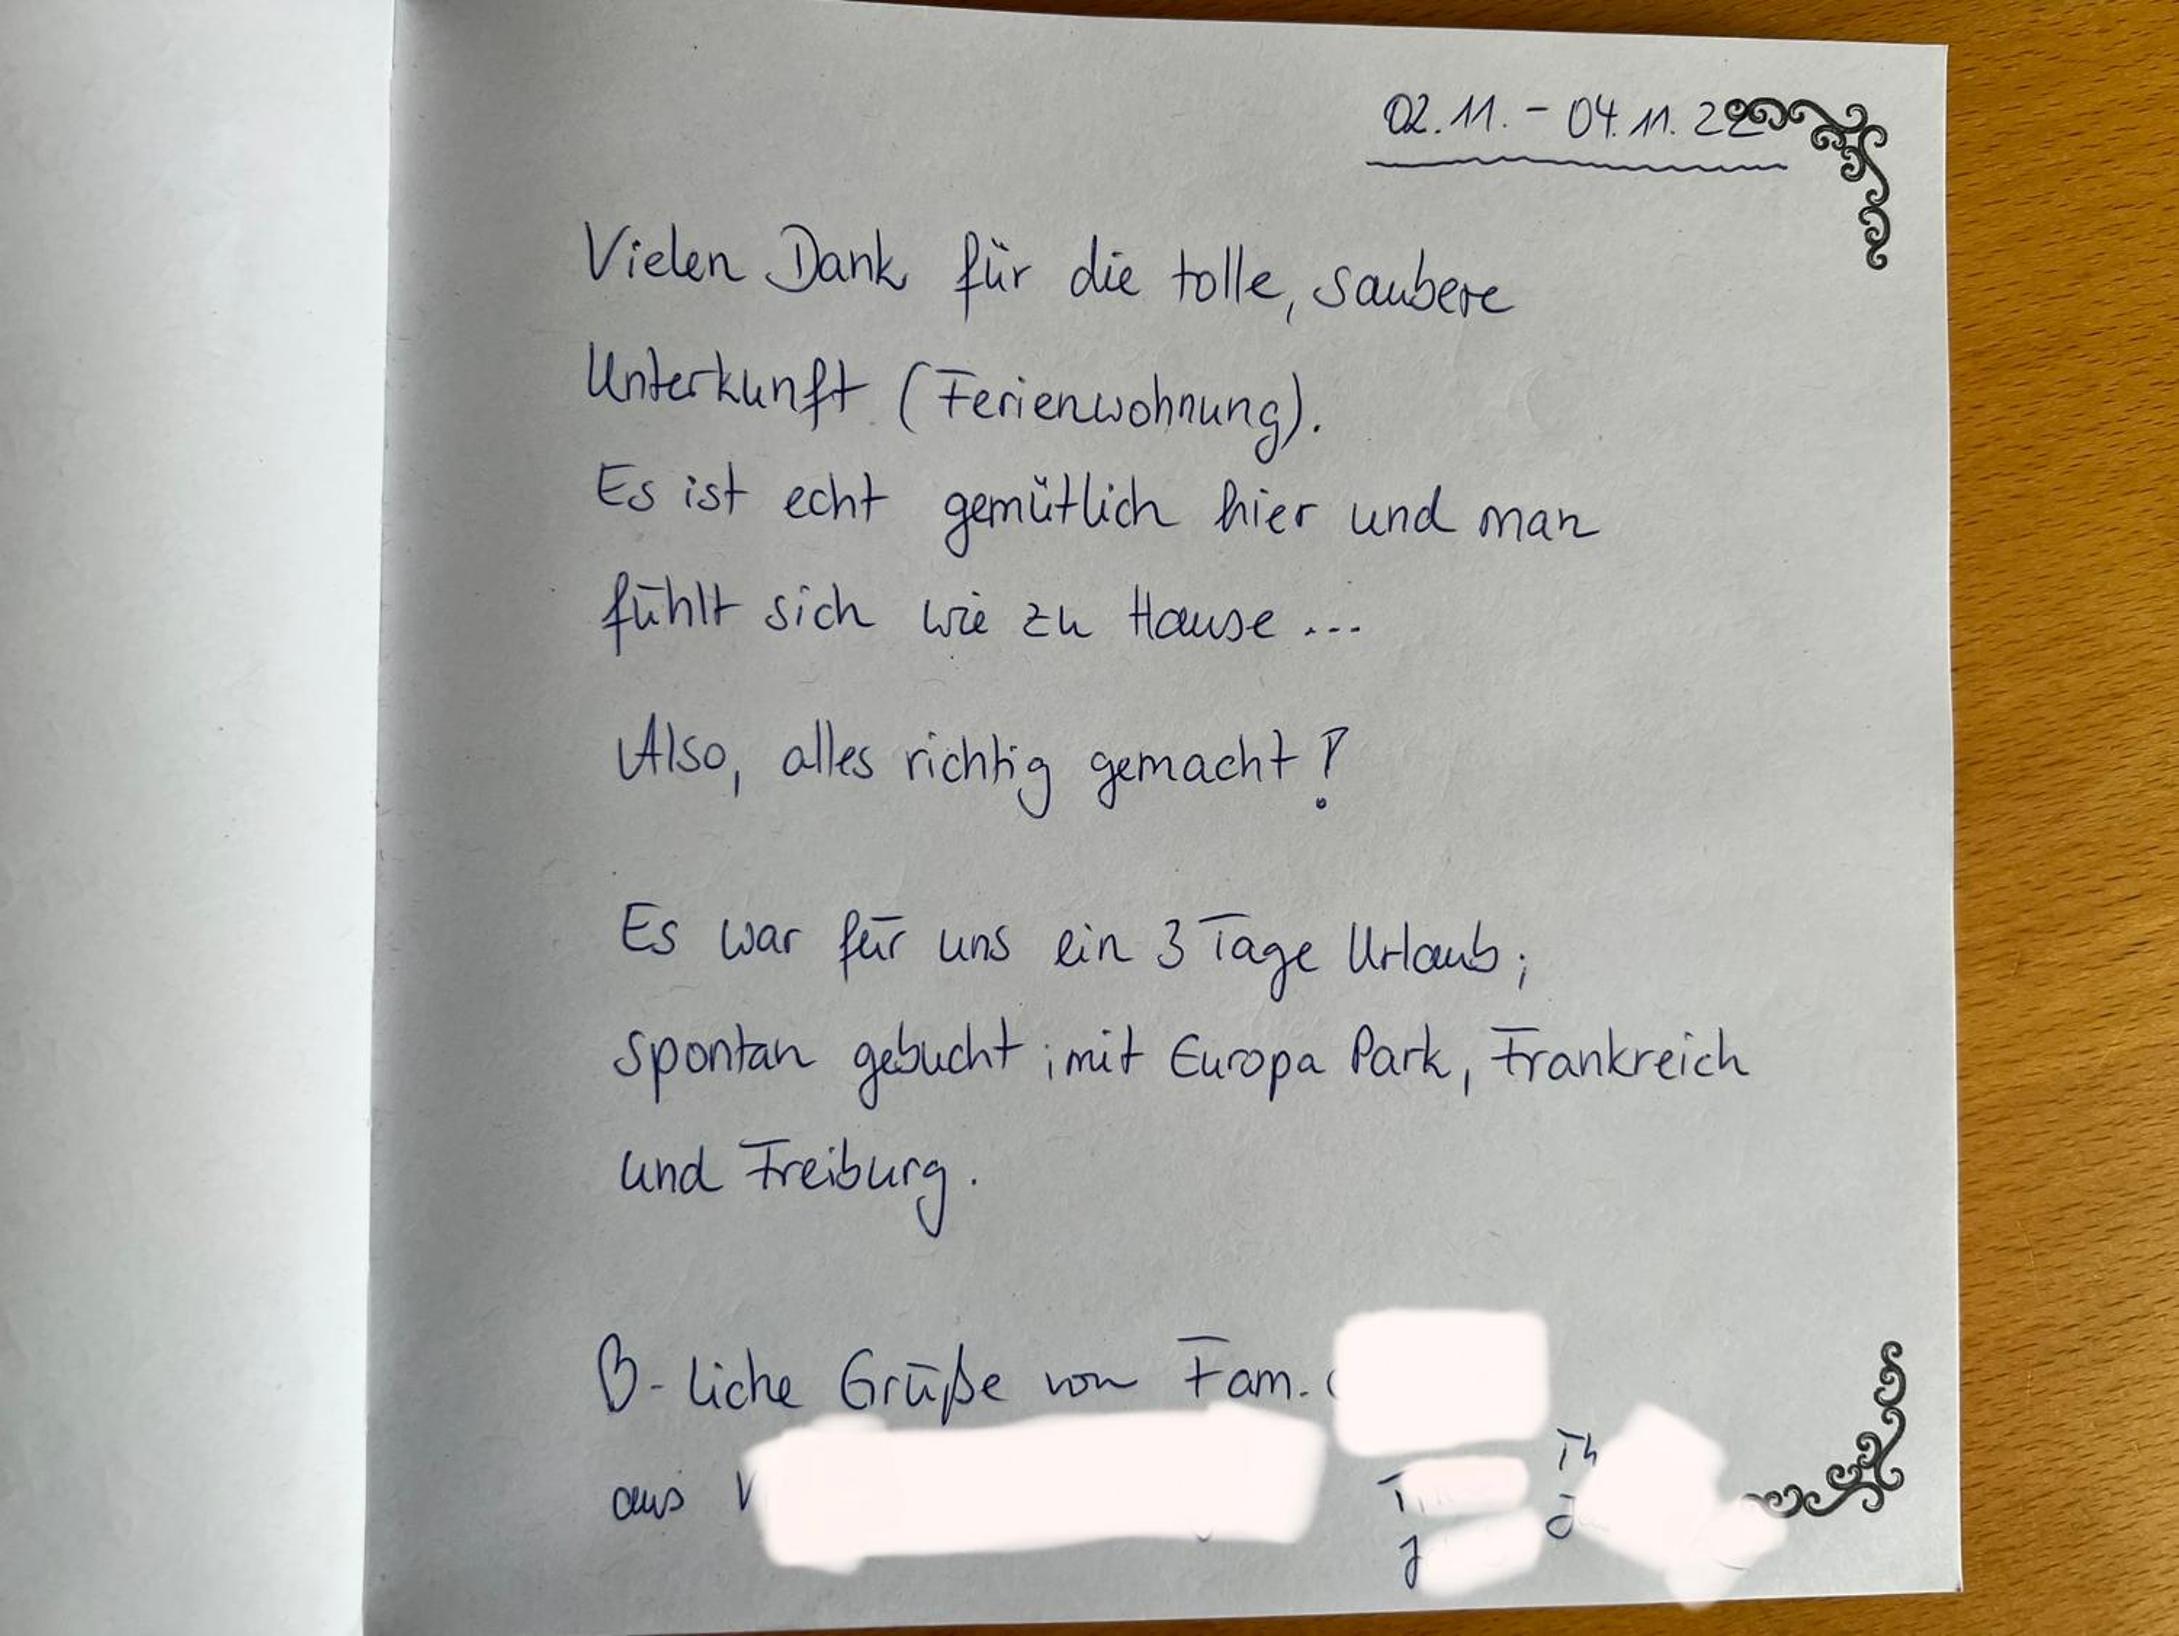 02.11. - 04.11.22
Vielen Dank für die tolle, saubere
Unterkunft (Ferienwohnung).
Es ist echt gemütlich hier und man
fühlt sich wie zu Hause ...
Also, alles richtig gemacht!
Es war für uns ein 3 Tage Urlaub;
spontan gebucht; mit Europa Park, Frankreich
und Freiburg.
-liche Grüße von Fam.
aus